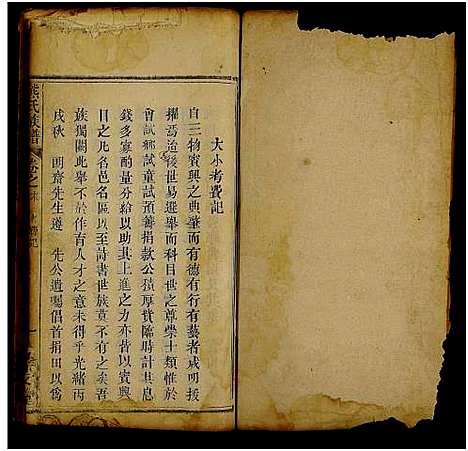 大小考費記
自三物賓興之典肇而有德有行有藝者咸明揚
擢焉治後世易選舉而科目世之尊榮士類惟於
會試鄉試童試預籌捐款公積厚貲臨時計其息
錢多寡酌量分給以助其上進之力亦昔以賓興
目之几名邑名區以至詩書世族莫不有之矣吾
族獨闕此舉不於作育人才之意未得乎光緒丙
戌秋 明齋先生遵 先公遺囑倡首捐田以爲
氏族譜